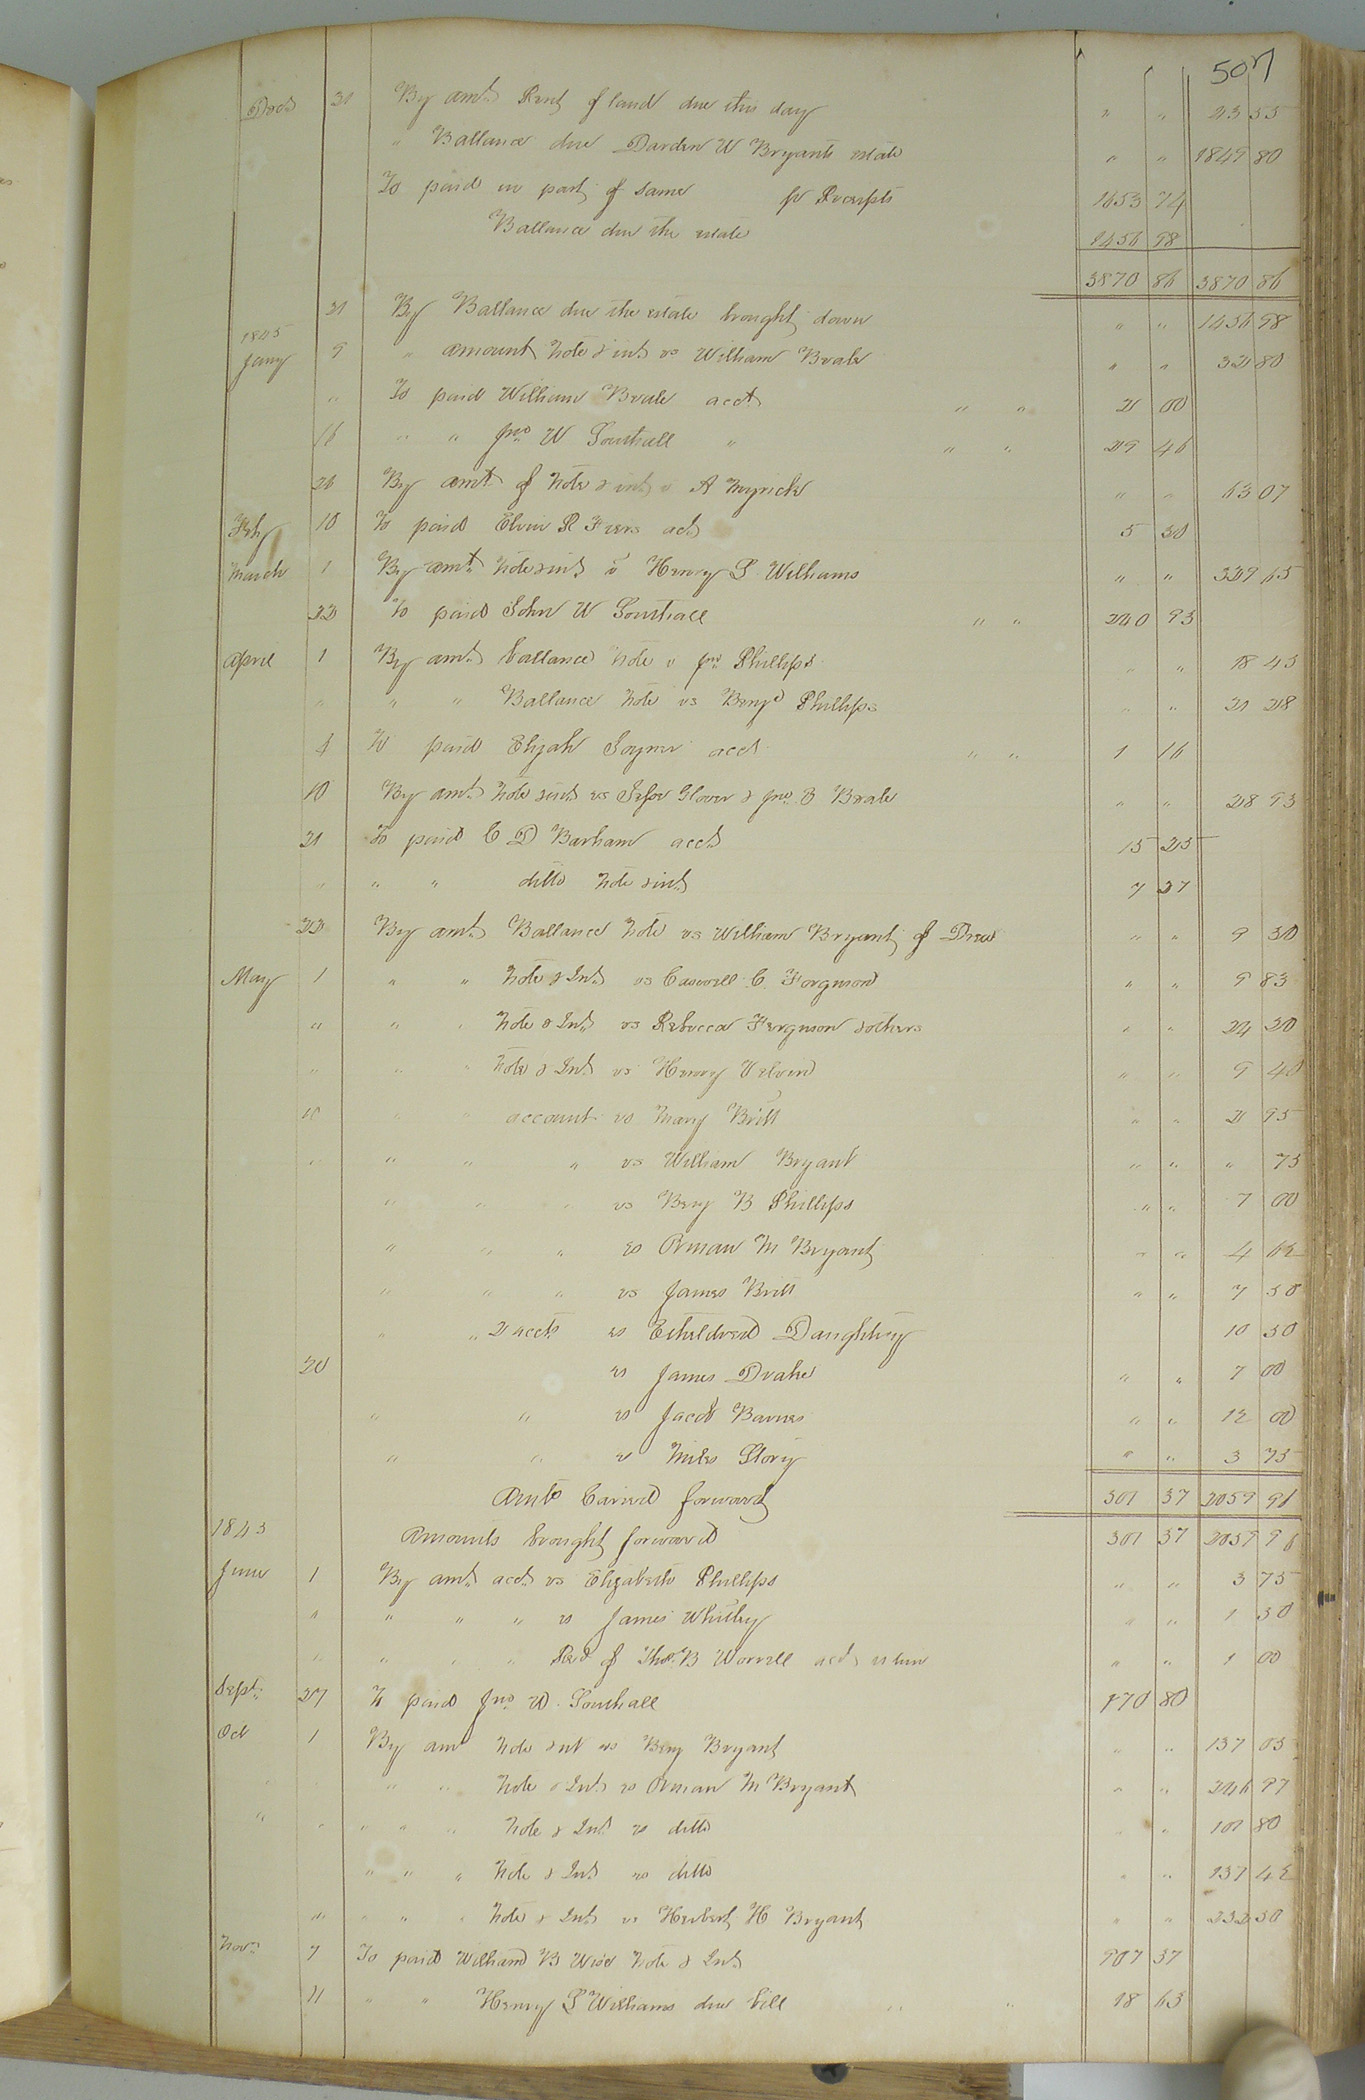 507
Decr 31 By amt. Rent of land due this day " " 23 55
" Ballance due Darden W Bryants estate " " 1849 80
To paid in part of same pr Receipts 1653 74
Ballance due the estate
3870 86 3870 86
31 By Ballance due the estate brought down " " 1456 98
1845
Jany 9 " amount note & int vs William Beale " "
" To paid William Beale acct " " 2 00
16 " " Jno W Southall " " " 29 46
26 By amt of note & int v A Myrick " " 63 07
Feby 10 To paid acct 5 30
March 1 By amt. note & int v Henry S Williams " " 329 65
22 To paid John W Southall " " 240 93
April 1 By amt. ballance note v Jno Phillips " " 18 43
" " " Ballance note vs Benjn Phillips " " 21 28
4 To paid Elijah Joyner acct " " 1 16
10 By amt. note & int. vs Glover & Jno Beale " " 28 93
21 To paid C D Barham acct 15 25
" " " ditto note & int 7 27
22 By amt Ballance note vs William Bryant of Drew " " 9 30
May 1 " " note & Int. vs Caswell C. Forgason " " 9 83
" " " note & Int vs Rebecca Ferguson & others " " 24 20
" " " note & Int vs Henry " " 9 40
10 " " account vs Mary Britt " " 2 95
" " " " vs William Bryant " " " 75
" " " vs Benj B Phillips " " 7 00
" " " vs Orman M Bryant " " 4 62
" " " vs James Britt " " 7 50
" " 2 accts vs Etheldred Daughtry 10 50
20 vs James Drake " " 7 00
" " vs Jacob Barnes " " 12 00
" " vs Miles Story " " 3 75
Amts Carried forward 301 37 2059 96
1845 Amounts brought forward 301 37 2059 96
June 1 By amt acct vs Elizabeth Phillips " " 3 75
" " " " vs James Whitley " " 1 50
" " " " Recd of Thos. B Worrell acct " " 1 00
Sept: 27 To paid Jno W. Southall 170 80
Oct 1 By amt note & int vs Benj Bryant " " 137 05
" " " note & Int vs Orman M Bryant " " 246 97
" " " " " note & Int vs ditto " " 101 80
" " " note & Int vs ditto " " 137 42
" " " " note & Int vs Herbert H Bryant " " 232 50
Novr 7 To paid William B Wise note & Int 907 37
11 " " Henry S Williams due bill " " 18 63